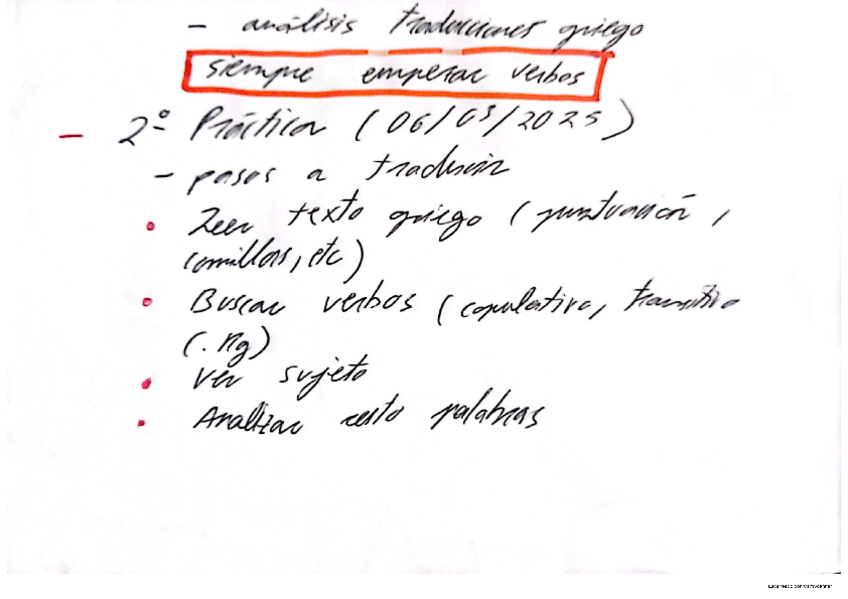 - análisis traducciones griego
siempre empezar verbos
- 2º Práctica (06/03/2025)
- pasos a traducir
• Leer texto griego (puntuación,
comillas, etc)
• Buscar verbos (copulativo, transitivo
• Ver sujeto
• Analizar resto palabras